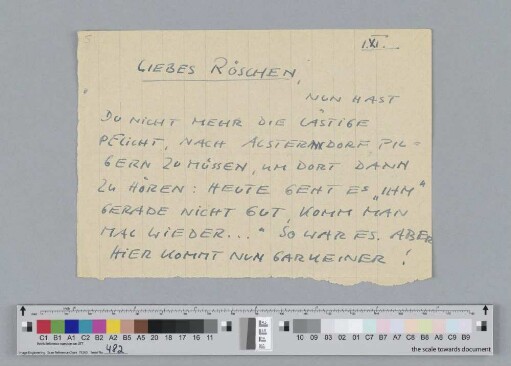 1.XI.
LIEBES RÖSCHEN,
NUN HAST
DU NICHT MEHR DIE LÄSTIGE
PFLICHT, NACH ALSTERDORF PIL-
GERN ZU MÜSSEN, UM DORT DANN
ZU HÖREN: HEUTE GEHT ES „IHM"
GERADE NICHT GUT, KOMM MAN
MAL WIEDER..." SO WAR ES. ABER
HIER KOMMT NUN GARKEINER!
C1 B1 A1 C2 B2 A2 B5 A5 20 18 17 16 11
10 09 03 02 01 C7 B7 A7 C8 B8 A8 C9 B9
482
the scale towards document